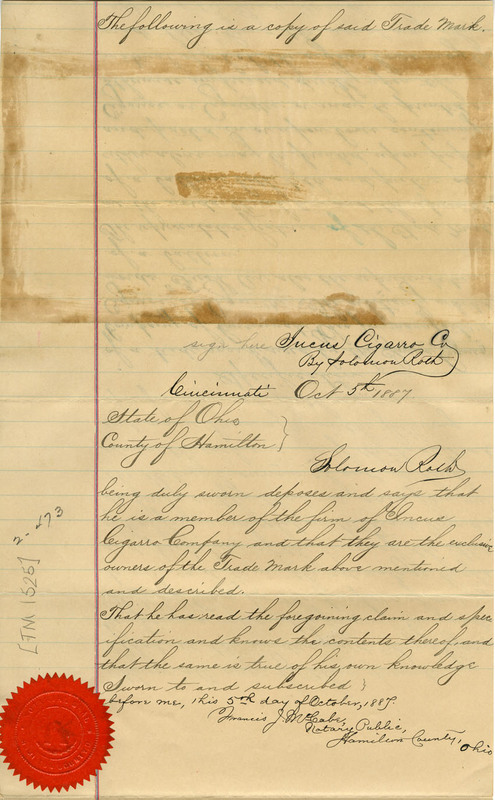 The following is a copy of said Trade Mark.
sign here Incus Cigarro Co
By Solomon Roth
Cincinnati Oct 5th 1887
State of Ohio
County of Hamilton }
Solomon Roth
being duly sworn deposes and says that
he is a member of the firm of Incus
Cigarro Company and that they are the exclusive
owners of the Trade Mark above mentioned
and described.
That he has read the foregoining claim and spec
ification and knows the contents thereof, and
that the same is true of his own knowledge
Sworn to and subscribed }
before me, this 5th day of October, 1887.
Francis J. McCabe,
Notary Public,
Hamilton County, Ohio
2-473
[TM 1525]